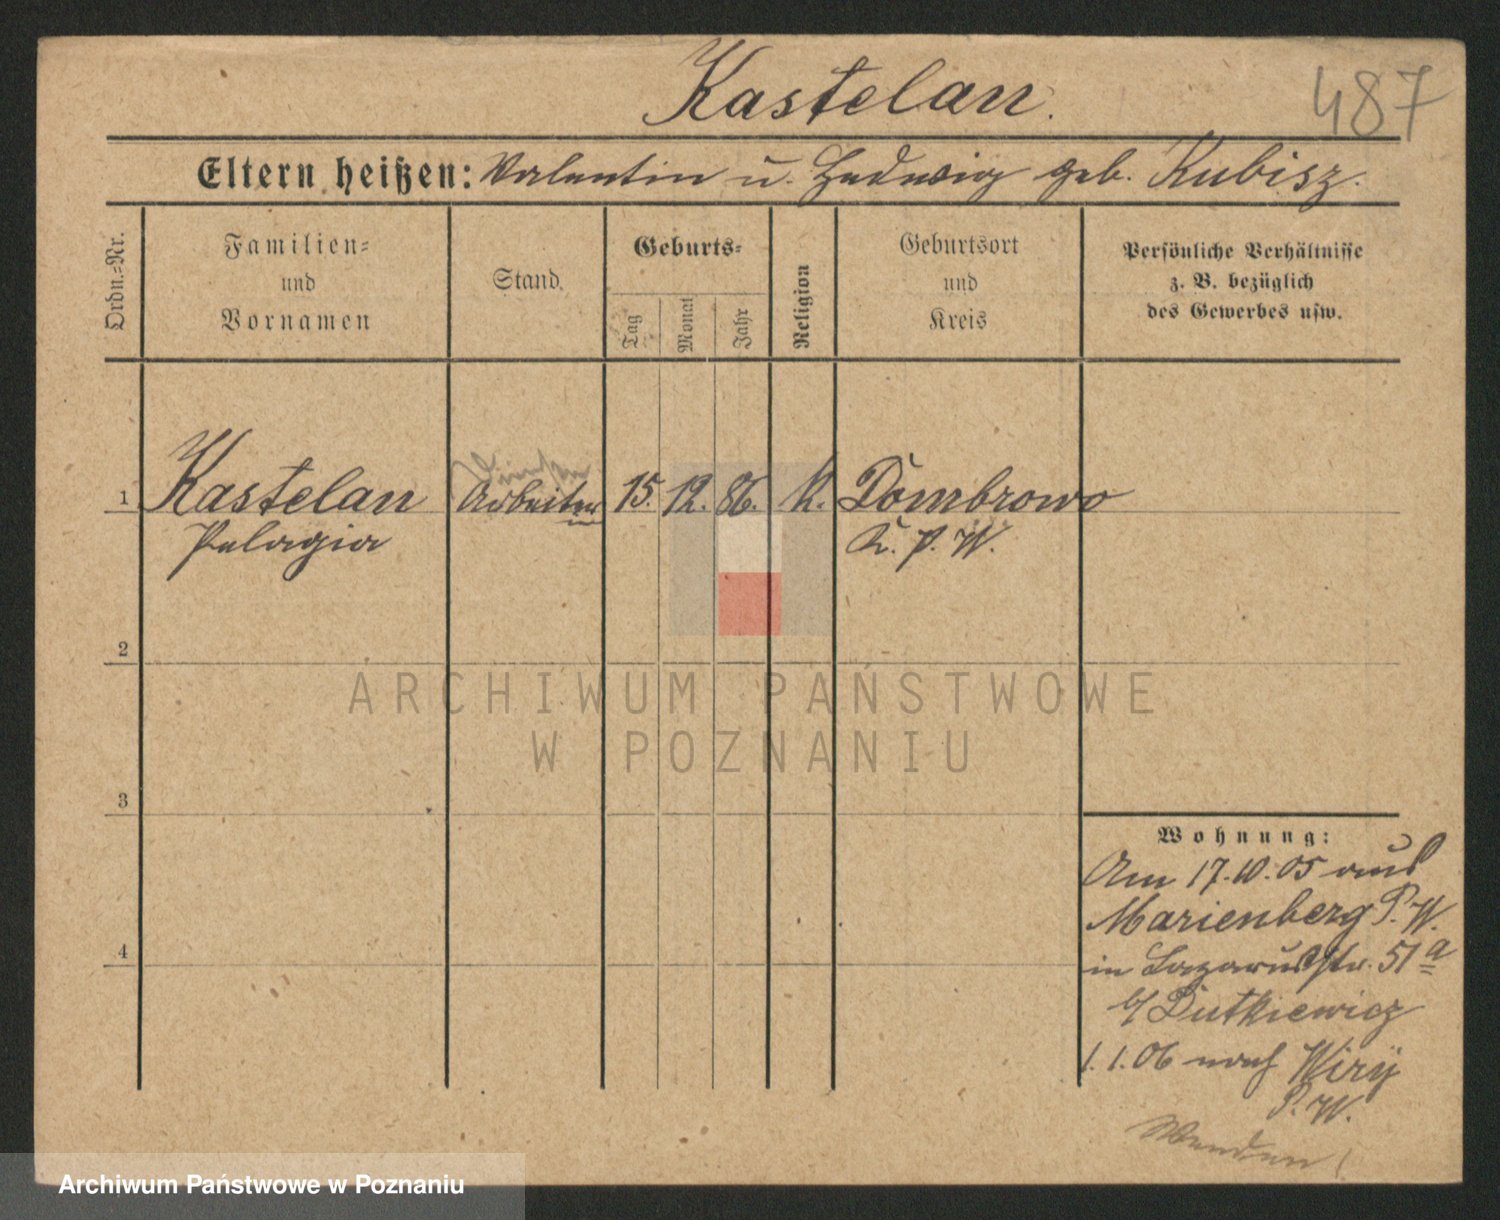 Kastelan.
487
Eltern heißen: Valentin u. Hedwig geb. Kubisz.
Ordn.=Nr.
Familien=
und
Vornamen
Stand
Geburts=
Tag
Monat
Jahr
Religion
Geburtsort
und
Kreis
Persönliche Verhältnisse
z. B. bezüglich
des Gewerbes usw.
1 Kastelan Arbeiterin 15. 12. 86. K. Dombrowo
Pelagia K. P. W.
2
ARCHIWUM PAŃSTWOWE
W POZNANIU
3
Wohnung:
Am 17.10.05 aus
Marienberg P. W.
in Lazarusstr. 51 a
b/ Dutkiewicz
4
1.1.06 nach Wiry
P. W.
Wenden!
Archiwum Państwowe w Poznaniu